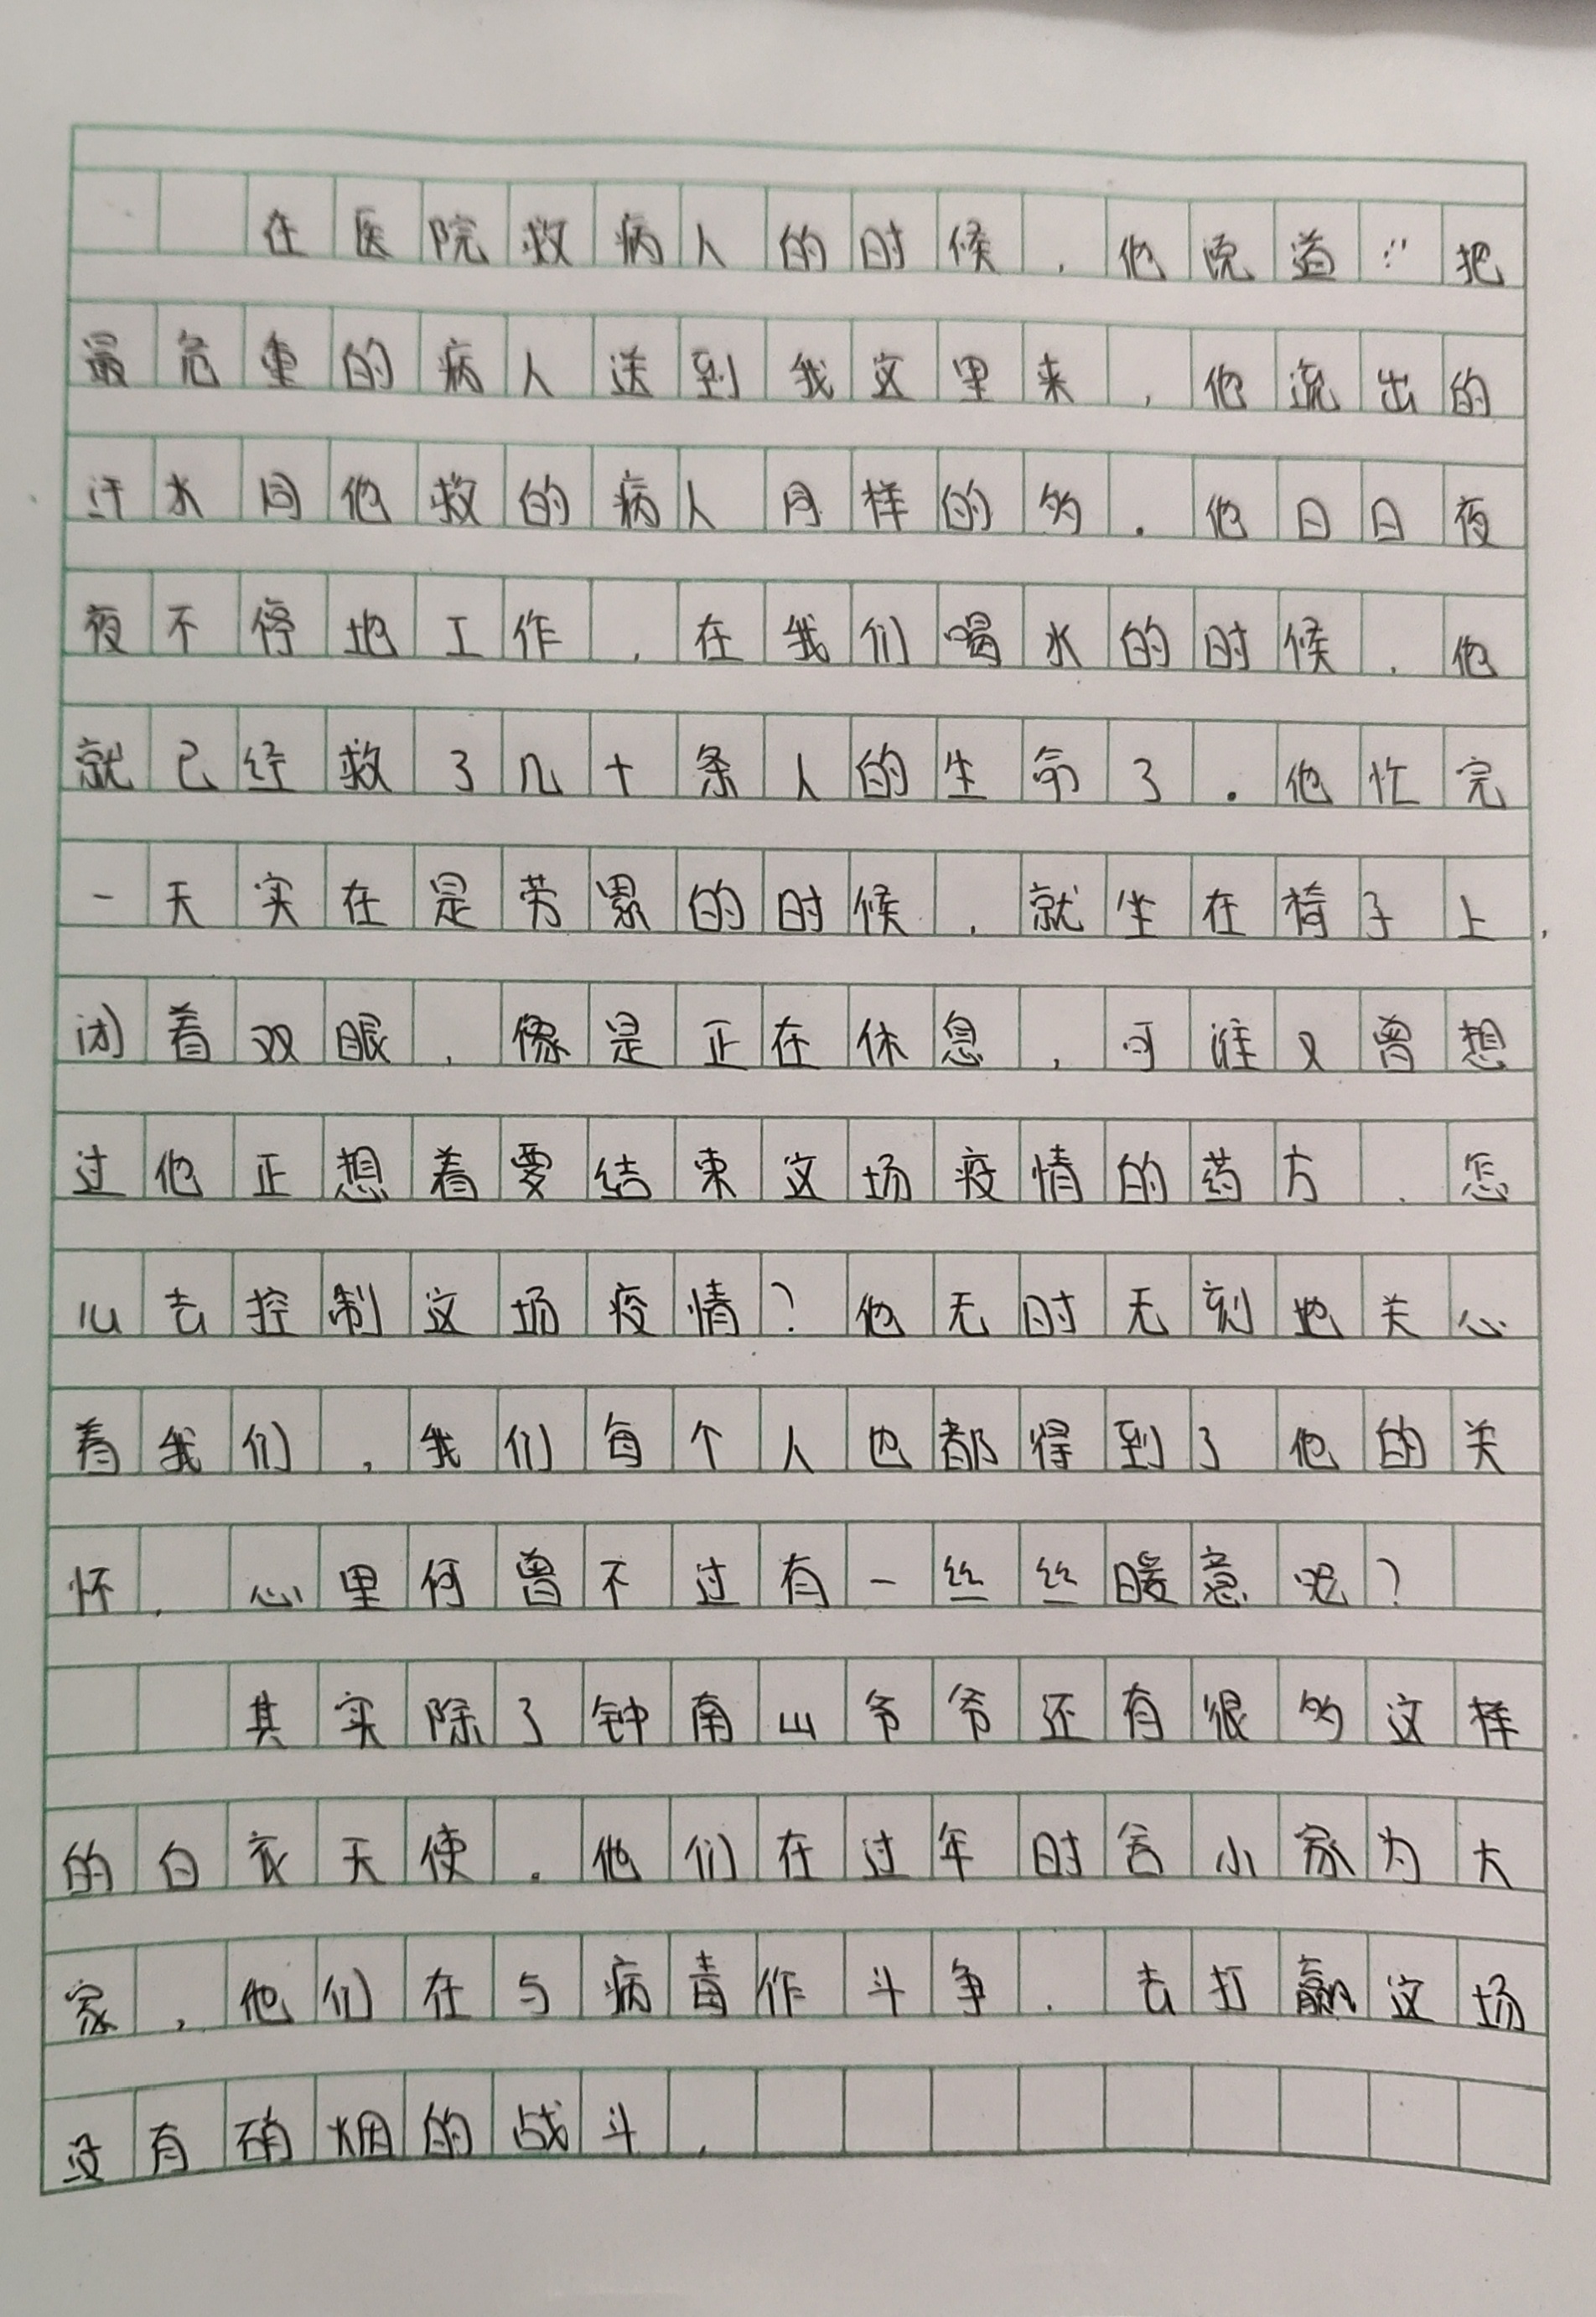 在医院救病人的时候，他说道：“把
最危重的病人送到我这里来，他流出的
汗水同他救的病人同样的多．他日日夜
夜不停地工作，在我们喝水的时候，他
就已经救了几十条人的生命了．他忙完
一天实在是劳累的时候，就坐在椅子上，
闭着双眼，像是正在休息，可谁又曾想
过他正想着要结束这场疫情的药方，怎
么去控制这场疫情？他无时无刻地关心
着我们，我们每个人也都得到了他的关
怀，心里何曾不过有一丝丝暖意呢？
其实除了钟南山爷爷还有很多这样
的白衣天使．他们在过年时舍小家为大
家，他们在与病毒作斗争，去打赢这场
没有硝烟的战斗，